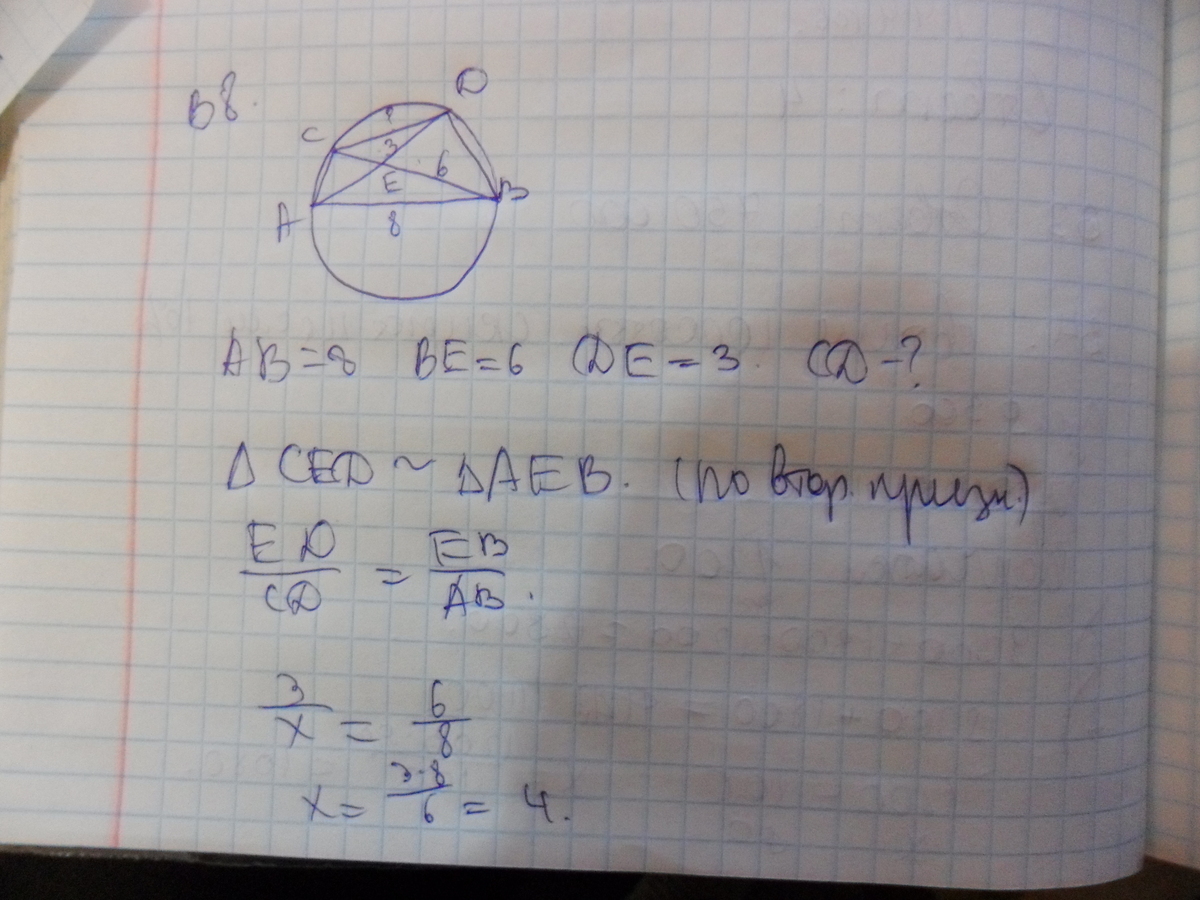 В8.
D
?
C
3
6
E
A
B
8
AB=8 BE=6 DE=3. CD-?
Δ CED ~ ΔAEB. (по втор. призн.)
ED/CD = EB/AB.
3/x = 6/8
x= 3·8/6 = 4.